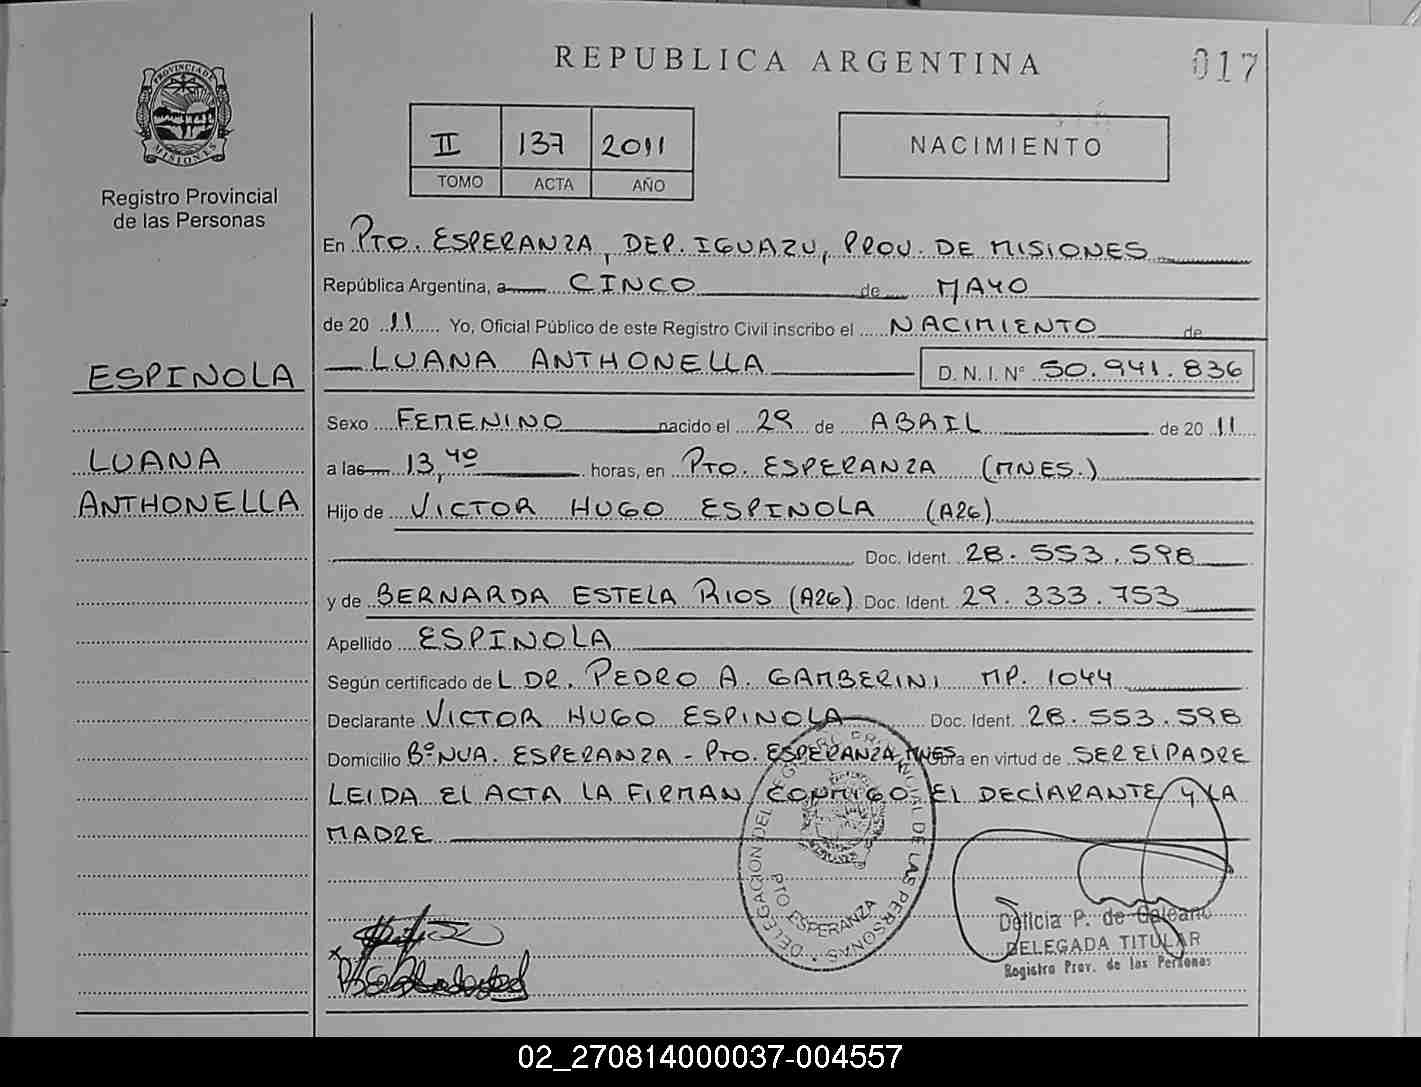 REPUBLICA ARGENTINA
017
PROVINCIA DE MISIONES
Registro Provincial
de las Personas
II 137 2011
TOMO ACTA AÑO
NACIMIENTO
En PTO. ESPERANZA, DEP. IGUAZU, PROV. DE MISIONES
República Argentina, a CINCO de MAYO
de 20 11 Yo, Oficial Público de este Registro Civil inscribo el NACIMIENTO de
LUANA ANTHONELLA D. N. I. Nº 50.941.836
ESPINOLA
LUANA
ANTHONELLA
Sexo FEMENINO nacido el 29 de ABRIL de 20 11
a las 13,40 horas, en PTO. ESPERANZA (MNES.)
Hijo de VICTOR HUGO ESPINOLA (A26)
Doc. Ident. 28.553.598
y de BERNARDA ESTELA RIOS (A26) Doc. Ident. 29.333.753
Apellido ESPINOLA
Según certificado de L DR. PEDRO A. GAMBERINI MP. 1044
Declarante VICTOR HUGO ESPINOLA Doc. Ident. 28.553.598
Domicilio Bº NVA. ESPERANZA - PTO. ESPERANZA MNES obra en virtud de SER El PADRE
LEIDA El ACTA LA FIRMAN CONMIGO EL DEClARANTE Y LA
MADRE
DELEGACION DEL REGISTRO PROVINCIAL DE LAS PERSONAS
PTO ESPERANZA
Delicia P. de Galeano
DELEGADA TITULAR
Registro Prov. de las Personas
02_270814000037-004557